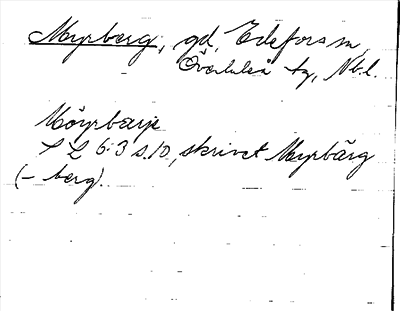 Myrberg, gd, Edefors sn,
Överluleå tg, Nb.l.
Möyrbærje
S L 6:3 s. 10, skrivet Myrbärg
(- berg).